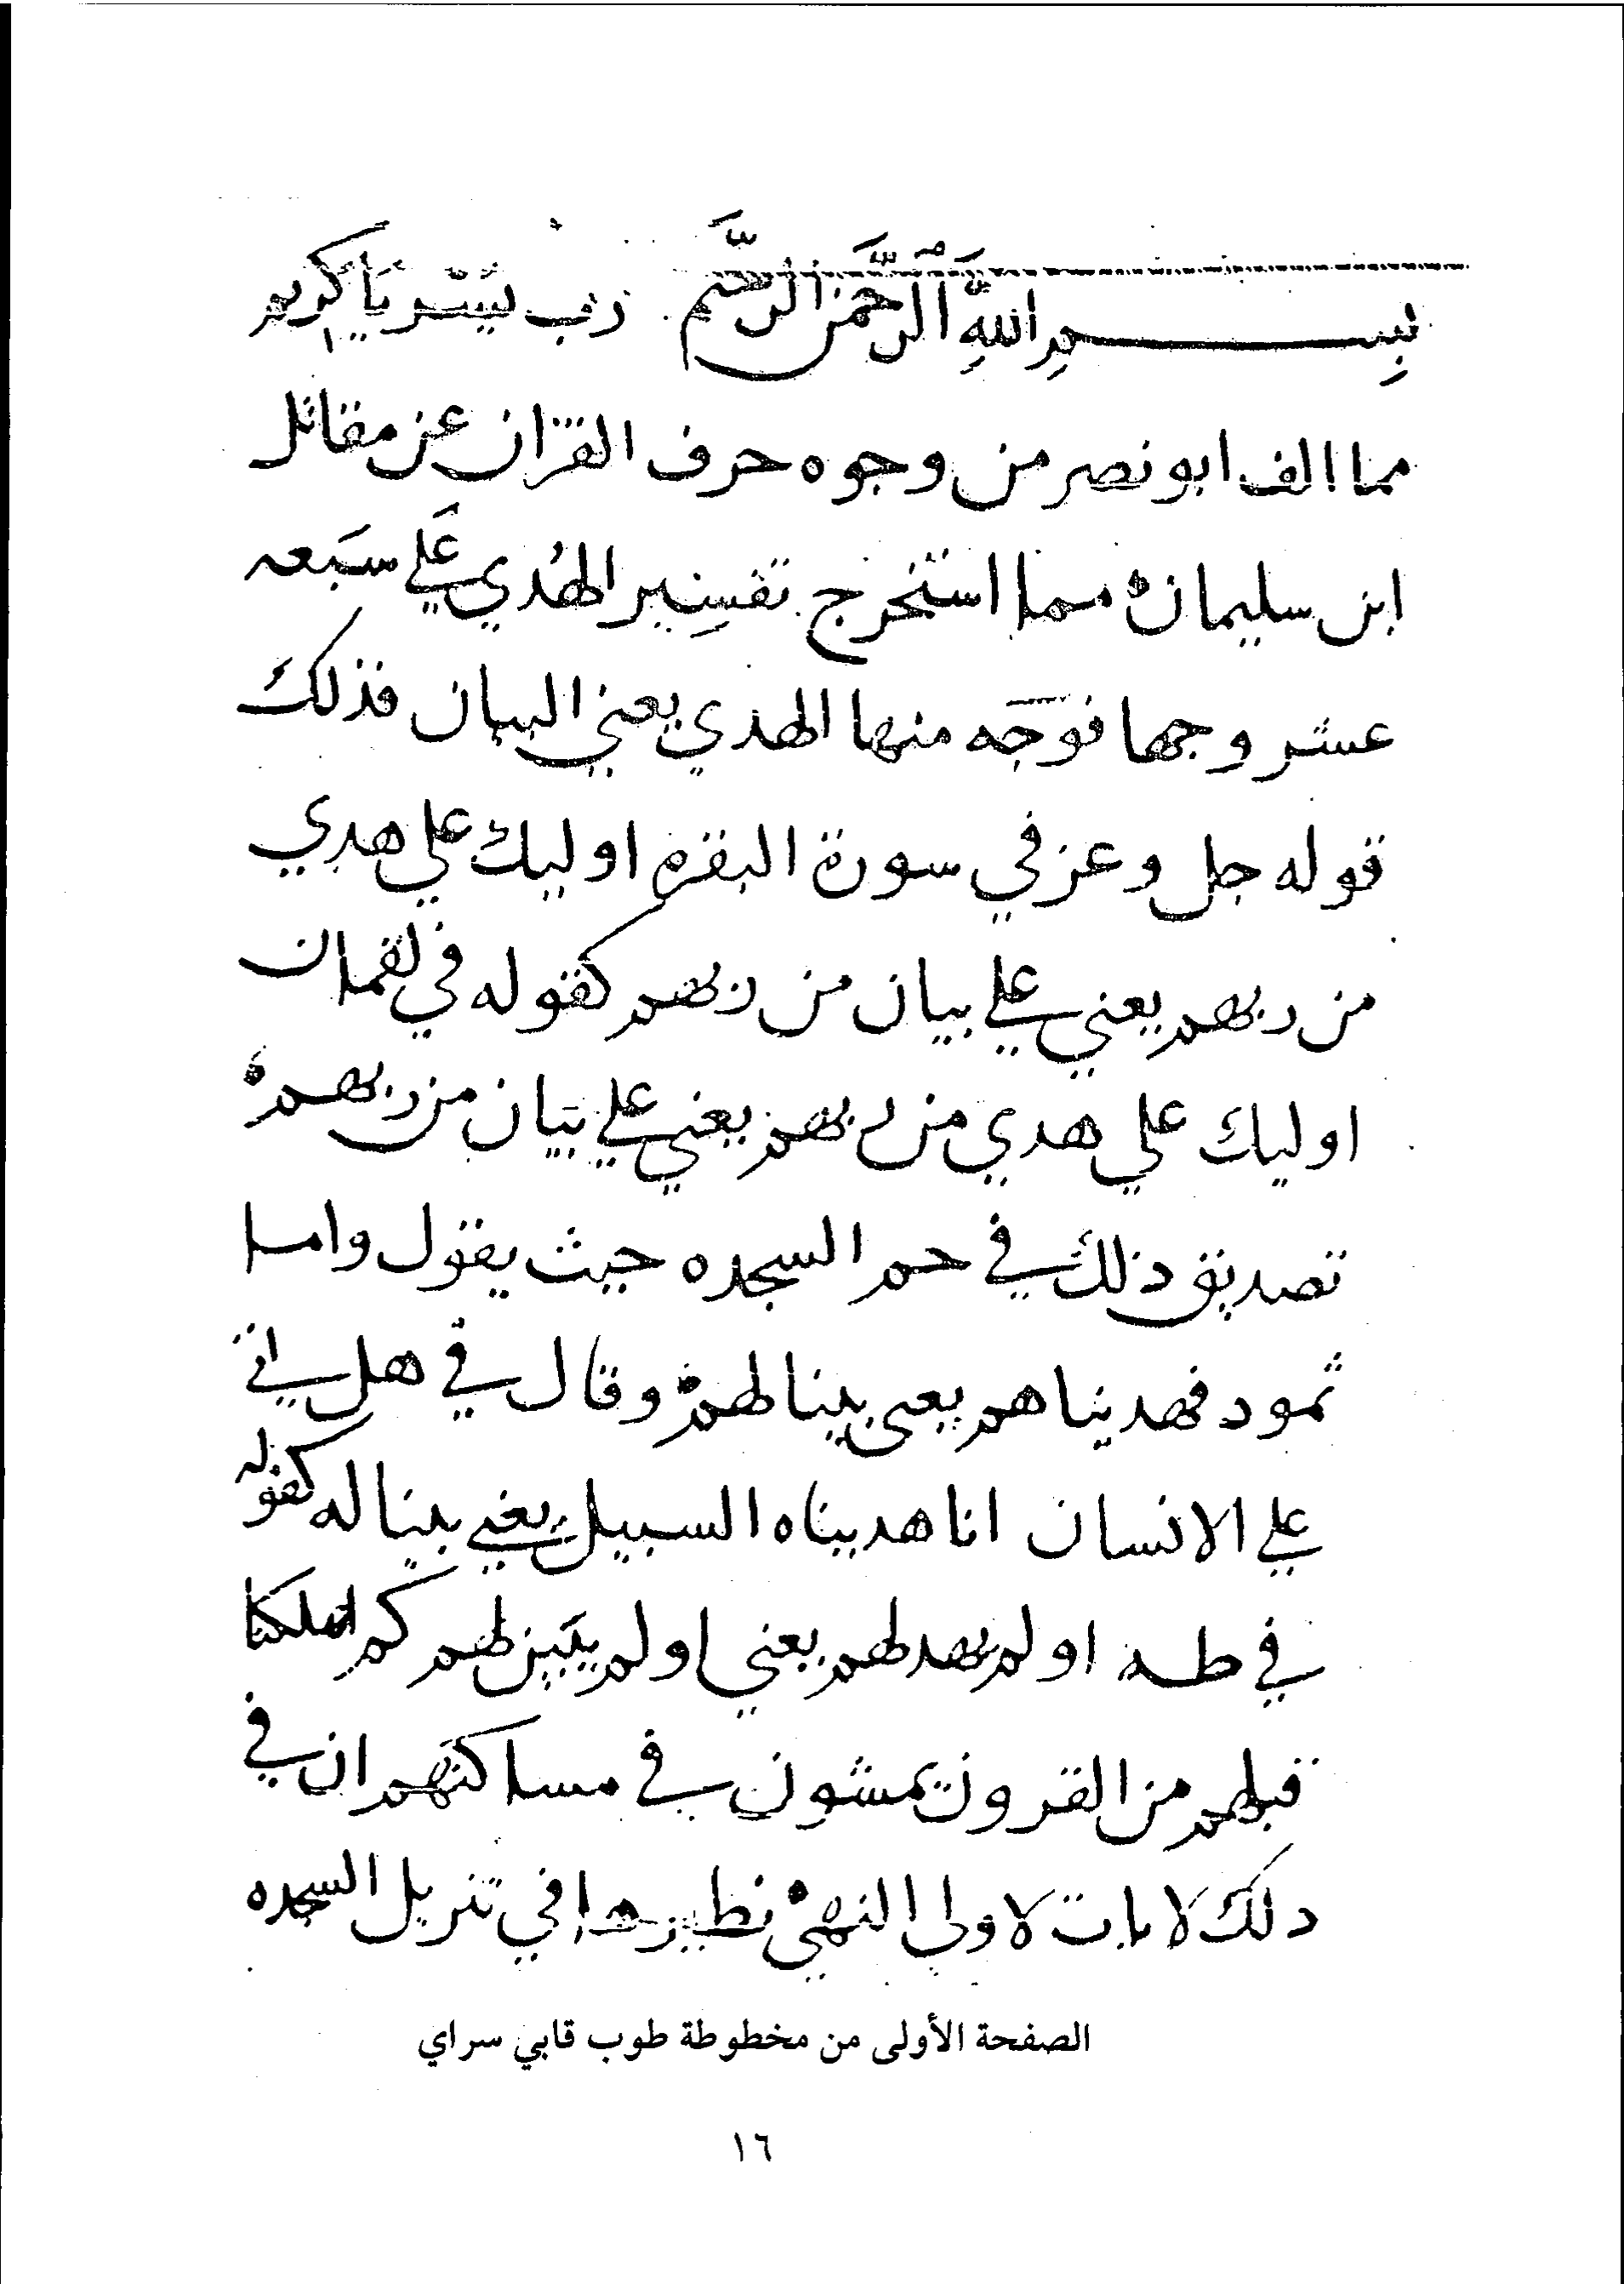 بِســـــمِ اللهِ الرَّحْمَن الرَّحِيم رب يَسّر يَا كريم
مما الف ابو نصر من وجوه حرف القران عن مقاتل
ابن سليمان مما استخرج تفسِير الهُدي عَلي سَبعه
عشر وجها فوَجَه منها الهدي يعني البيان فذلك
قوله جل وعز في سورة البقره اوليك علي هدي
من ربهم يعني علي بيان من ربهم كقوله في لقمان
اوليك علي هدي من ربهم يعني علي بيان من ربهم
تصديق ذلك في حم السجده حيث يقول واما
ثمود فهديناهم يعني بينا لهم وقال في هل اتي
علي الانسان انا هديناه السبيل يعني بينا له كقوله
في طه اولم يهد لهم يعني اولم يبَين لهم كم اهلكنا
قبلهم من القرون يمشون في مساكنهم ان في
ذلك لايات لاولي النهي نظيرها في تنزيل السجده
الصفحة الأولى من مخطوطة طوب قابي سراي
١٦